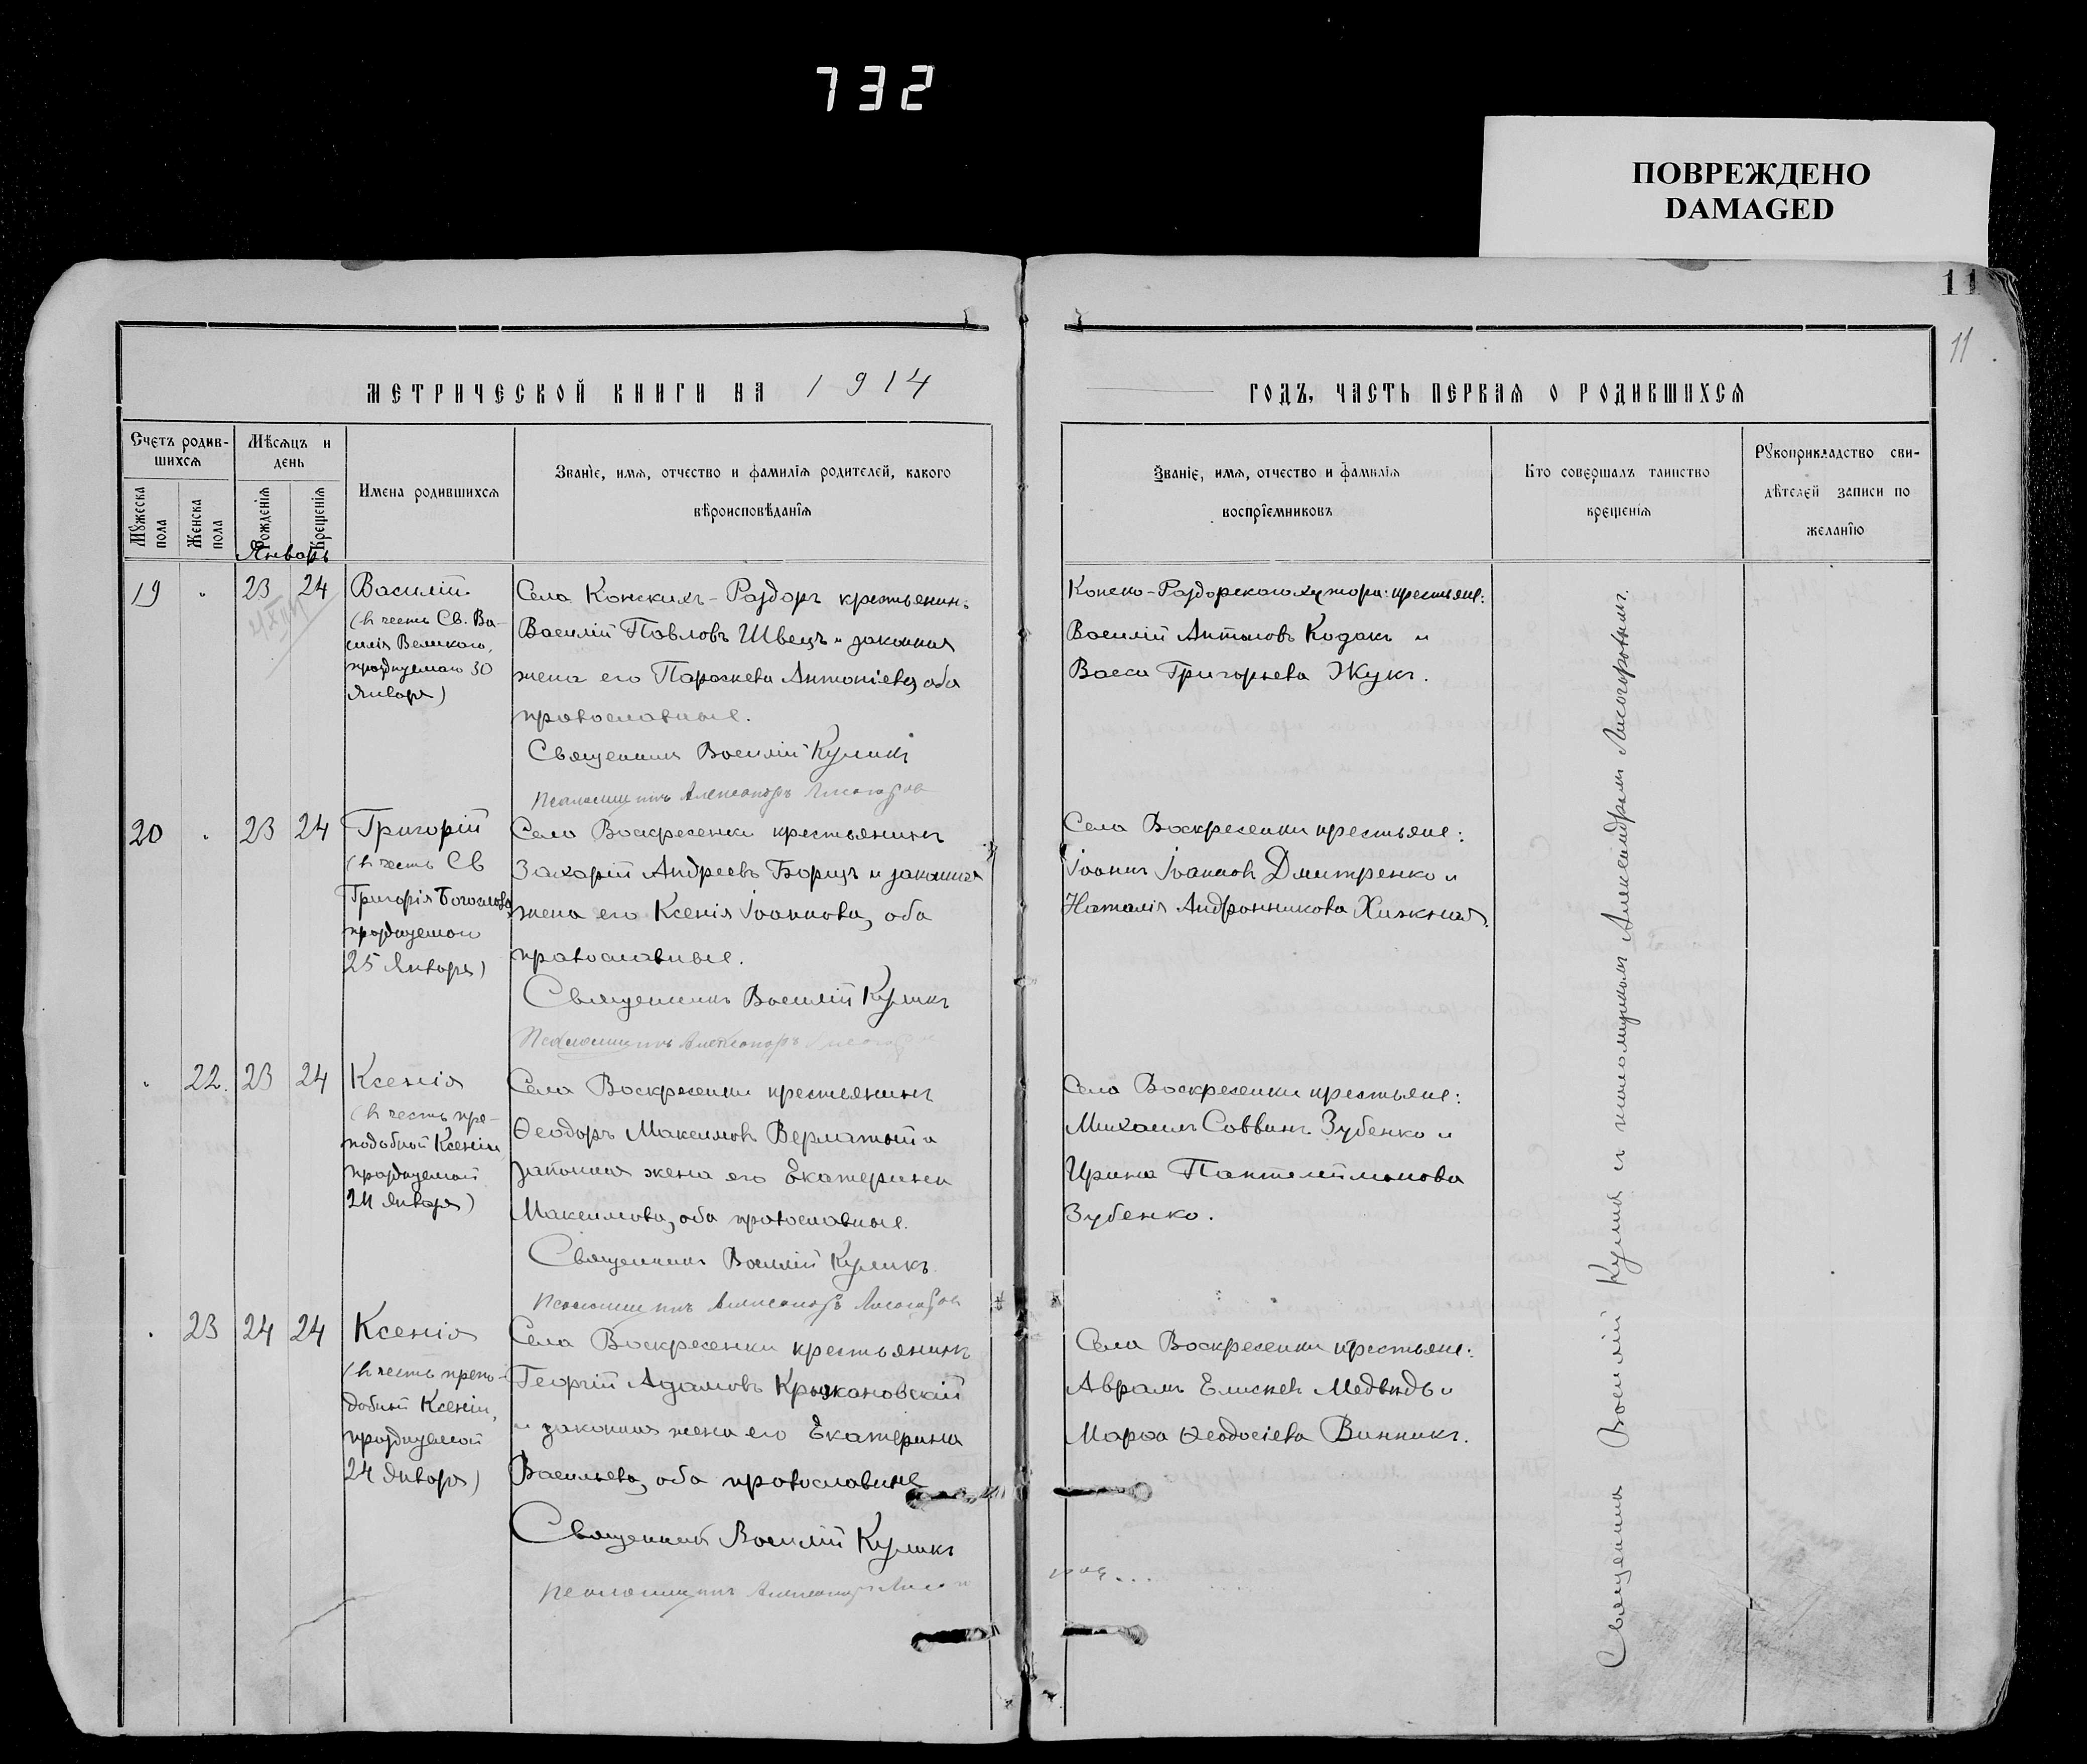 732
ПОВРЕЖДЕНО
DAMAGED
11
11
МЕТРИЧЕСКОЙ КНИГИ НА 1914
ГОДЪ, ЧАСТЬ ПЕРВАЯ О РОДИВШИХСЯ
Счетъ родив-
шихся
Мужеска
пола
Женска
пола
Мѣсяцъ и
день
Рожденія
Крещенія
Имена родившихся
Званіе, имя, отчество и фамилія родителей, какого
вѣроисповѣданія
Званіе, имя, отчество и фамилія
воспріемниковъ
Кто совершалъ таинство
крещенія
Рукоприкладство сви-
дѣтелей записи по
желанію
Январь
19 " 23 24
Василій
(въ честь Св. Ва-
силія Великаго,
празднуемаго 30
Января)
Села Конскихъ-Раздоръ крестьянинъ
Василій Павловъ Швецъ и законная
жена его Параскева Антоніева, оба
православные.
Священникъ Василій Куликъ
Псаломщикъ Александръ
Конско-Раздорскаго хутора крестьяне:
Василій Антоновъ Кодакъ и
Васса Григорьева Жукъ.
20 " 23 24
Григорій
(въ честь Св
Григорія Богослова,
празднуемаго
25 Января)
Села Воскресенки крестьянинъ
Захарій Андреевъ Борщъ и законная
жена его Ксенія Іоаннова, оба
православные.
Священникъ Василій Куликъ
Псаломщикъ Александръ
Села Воскресенки крестьяне:
Іоаннъ Іоанновъ Дмитренко и
Наталія Андронникова Хижная.
" 22. 23 24
Ксенія
(въ честь пре-
подобной Ксеніи,
празднуемой
24 Января)
Села Воскресенки крестьянинъ
Ѳеодоръ Максимовъ Верлатый и
законная жена его Екатерина
Максимова, оба православные.
Священникъ Василій Куликъ
Псаломщикъ Александръ
Села Воскресенки крестьяне:
Михаилъ Саввинъ Зубенко и
Ирина Пантелеймонова
Зубенко.
" 23 24 24
Ксенія
(въ честь препо-
добной Ксеніи,
празднуемой
24 Января)
Села Воскресенки крестьянинъ
Георгій Адамовъ Крыжановскій
и законная жена его Екатерина
Васильева, оба православные
Священникъ Василій Куликъ
Псаломщикъ Александръ
Села Воскресенки крестьяне:
Аврамъ Елисеевъ Медвѣдь и
Марѳа Ѳеодосіева Винникъ.
Священникъ Василій Куликъ съ псаломщикомъ Александромъ